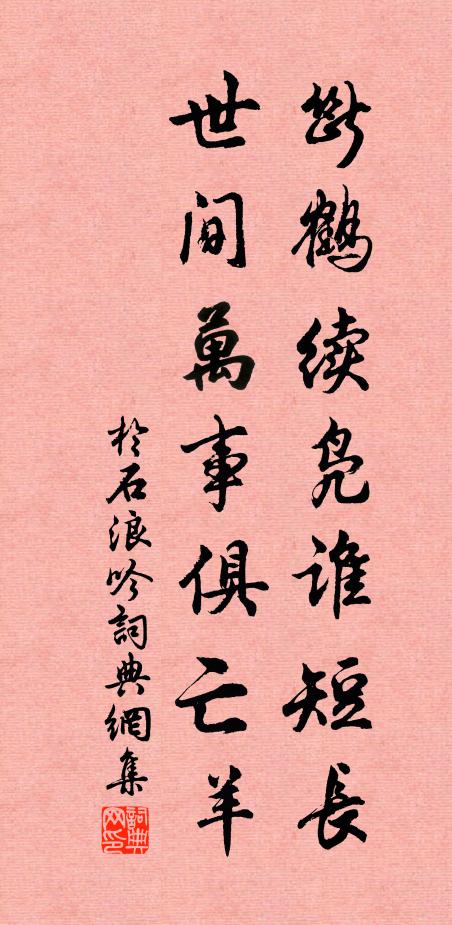 断鶴續鳧誰短長
世间萬事俱亡羊
於石浪吟詞典網集
詞典网印